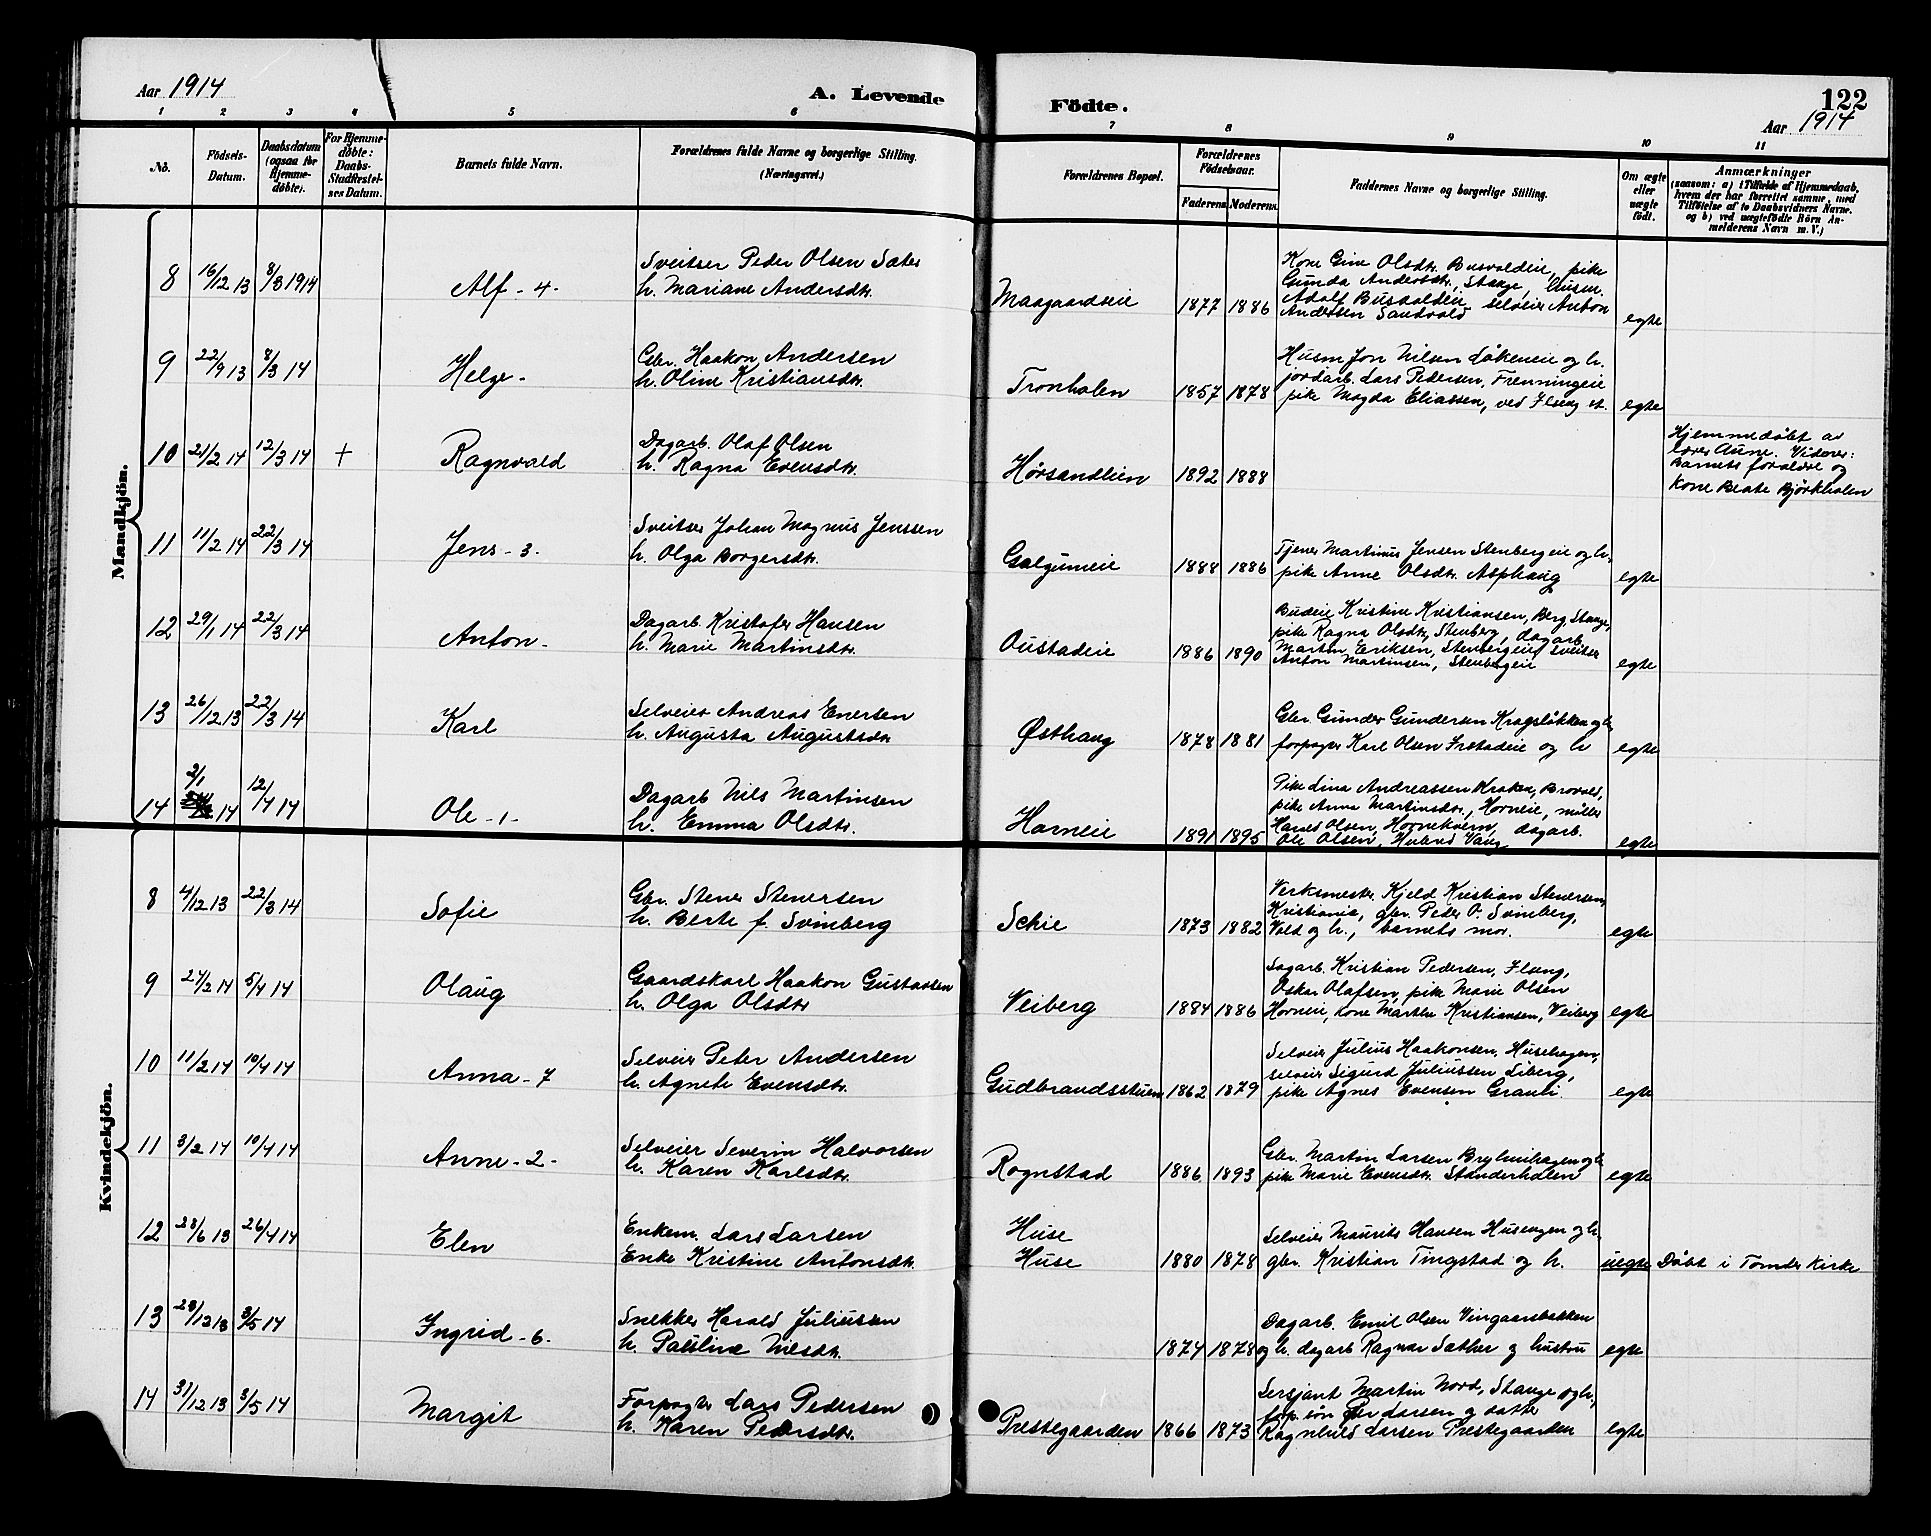 Aar 1914
A. Levende
Födte.
122
Aar 1914
1 2 3 4 5 6 7 8 9 10 11
No.
Födsels-
Datum.
Daabsdatum
(ogsaa for
Hjemme-
døbte).
For Hjemme-
døbte:
Daabs-
Stadfæstel-
ses Datum.
Barnets fulde Navn.
Forældrenes fulde Navne og borgerlige Stilling.
(Næringsvei.)
Forældrenes Bopæl.
Forældrenes
Födselsaar.
Faderens Moderens
Faddernes Navne og borgerlige Stilling.
Om ægte
eller
uægte
födt.
Anmærkninger
(saasom: a) i Tilfælde af Hjemmedaab,
hvem der har forrettet samme, med
Tilföielse af to Daabsvidners Navne,
og b) ved uægtefödte Börn An-
melderens Navn m. V.)
Mandkjön.
8 16/12 13 8/3 1914 Alf - 4 -
Sveitser Peder Olsen Sæter
h. Mariane Andersdtr.
Maagaardseie 1877 1886
Kone Gine Olsdtr. Busvoldeie, pike
Gunda Andersdtr., Stange, husm.
Adolf Busvoldeie, selveier Anton
Andersen Sandvold
egte
9 22/9 13 8/3 14 Helge -
Gbr. Haakon Andersen
h. Oline Kristiansdtr.
Tronholen 1857 1878
Husm Jon Nilsen Løkeneie og h.
jordarb. Lars Pedersen, Frenningeie
pike Magda Eliassen, ved Ilseng st.
egte
10 21/2 14 12/3 14 + Ragnvald
Dagarb. Olaf Olsen
h. Ragna Evensdtr.
Hørsandlien 1892 1888
Hjemmedøbt av
lærer Aune. Vidner:
Barnets forældre og
kone Beate Bjørkholen
11 11/2 14 22/3 14 Jens - 3 -
Sveitser Johan Magnus Jenssen
h. Olga Borgersdtr.
Galgumeie 1888 1886
Tjener Martinus Jensen Stenbergeie og h.,
pike Anne Olsdtr. Asphaug
egte
12 29/1 14 22/3 14 Anton -
Dagarb. Kristofer Hansen
h. Marie Martinsdtr.
Oustadeie 1886 1890
Budeie Kristine Kristiansen, Berg, Stange,
pike Ragna Olsdtr., Stenberg, dagarb.
Martin Eriksen, Stenbergeie, sveitser
Anton Martinsen, Stenbergeie
egte
13 26/12 13 22/3 14 Karl
Selveier Andreas Enersen
h. Augusta Augustsdtr
Østhaug 1878 1881
Gbr. Gunder Gundersen Kragsløkken og h,
forpagter Karl Olsen Frestadeie og h
egte
14 2/1 14 12/4 14 Ole - 1 -
Dagarb Nils Martinsen
h. Emma Olsdtr.
Horneie 1891 1895
Pike Lina Andreassen Kraken, Brovold,
pike Anna Martinsdtr., Horneie, møller
Harald Olsen, Hornekvern, dagarb.
Ole Olsen, Vang
egte
Kvindekjön.
8 4/12 13 22/3 14 Sofie
Gbr. Stener Stenersen
h. Berte f. Svinberg
Schie 1873 1882
Verksmester Kjeld Kristian Stenersen,
Kristiania, gbr. Peder O. Svinberg,
Vold og h., barnets mor.
egte
9 24/2 14 5/4 14 Olaug
Gaardskarl Haakon Gustavsen
h. Olga Olsdtr
Veiberg 1884 1886
Sagarb. Kristian Pedersen, Ilseng,
Oskar Olafsen, pike Marie Olsen
Horneie, kone Marthe Kristiansen, Veiberg
egte
10 11/2 14 10/4 14 Anna - 7
Selveier Peter Andersen
h. Agnete Evensdtr.
Gudbrandsstuen 1862 1879
Selveier Julius Haakonsen, Husehagen,
selveier Sigurd Juliussen Liberg,
pike Agnes Evensen Granli.
egte
11 3/2 14 10/4 14 Anne - 2 -
Selveier Severin Halvorsen
h. Karen Karlsdtr.
Rognstad 1886 1893
Gbr. Martin Larsen Brylunhagen og h
pike Marie Evensdtr. Standerholen
egte
12 28/6 13 26/4 14 Elen
Enkem. Lars Larsen
Enke Kristine Antonsdtr.
Huse
Huse 1880 1878
Selveier Maurits Hansen Husengen og h.
gbr. Kristian Tingstad og h.
uegte Døbt i Tomter Kirke
13 28/12 13 3/5 14 Ingrid - 6 -
Snekker Harald Juliussen
h. Pauline Nilsdtr.
1874 1878
Dagarb. Emil Olsen Vingaarsbakken
og h. dagarb Ragnar Sæther og hustru
egte
14 31/12 13 3/5 14 Margit
Forpagter Lars Pedersen
h. Karen Pedersdtr.
Prestegaarden 1866 1873
Sersjant Martin Nord, Stange og h,
forp. søn Per Larsen og datter
Ragnhild Larsen Prestegaarden
egte